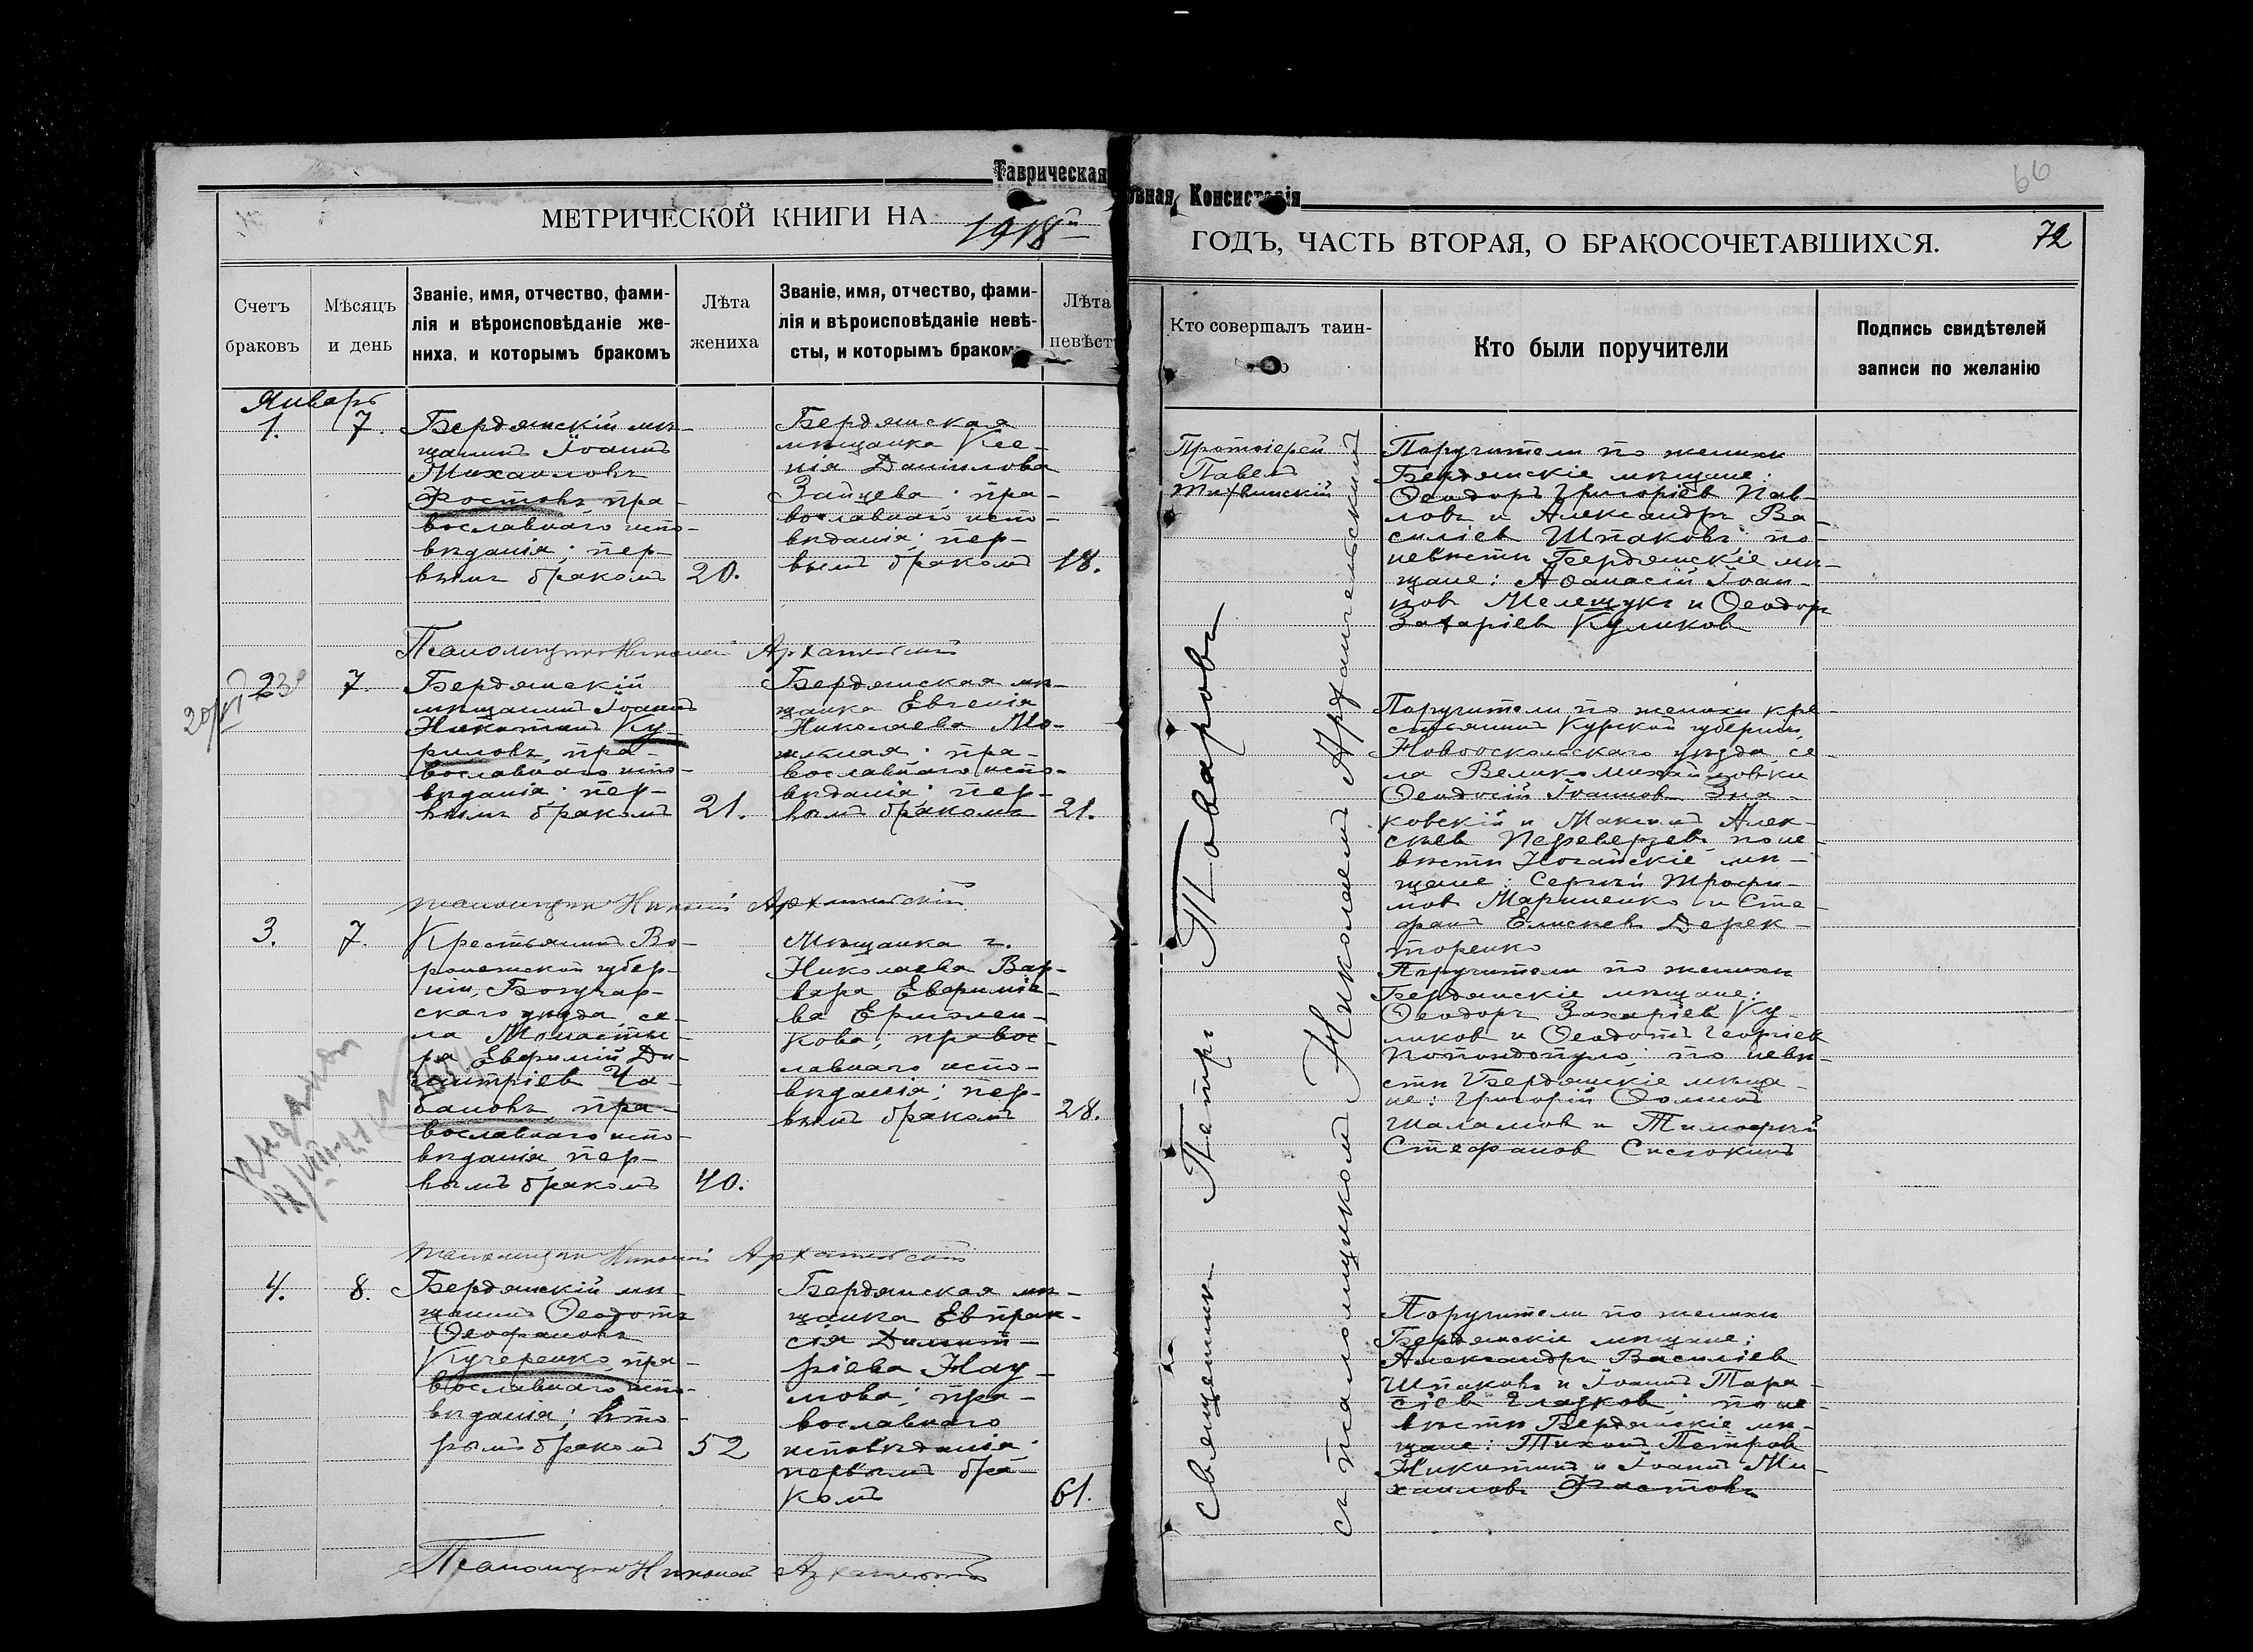 Таврическая
овная Консисторія
66
МЕТРИЧЕСКОЙ КНИГИ НА 1918й
ГОДЪ, ЧАСТЬ ВТОРАЯ, О БРАКОСОЧЕТАВШИХСЯ.
72
Счетъ
браковъ
Мѣсяцъ
и день
Званіе, имя, отчество, фами-
лія и вѣроисповѣданіе же-
ниха, и которымъ бракомъ
Лѣта
жениха
Званіе, имя, отчество, фами-
лія и вѣроисповѣданіе невѣ-
сты, и которымъ бракомъ
Лѣта
невѣст
Кто совершалъ таин-
Кто были поручители
Подпись свидѣтелей
записи по желанію
Январь
1.
7.
Бердянскій мѣ-
щанинъ Іоаннъ
Михаиловъ
Фостовъ, пра-
вославнаго испо-
вѣданія; пер-
вымъ бракомъ
20.
Бердянская
мѣщанка Ксе-
нія Даніилова
Зайцева; пра-
вославнаго испо-
вѣданія; пер-
вымъ бракомъ
18.
Протоіерей
Павелъ
Тихвинскій
Поручители по женихѣ
Бердянскіе мѣщане:
Ѳеодоръ Григоріев Пав-
ловъ и Александръ Ва-
силіев Шпаковъ; по
невѣстѣ Бердянскіе мѣ-
щане: Аѳанасій Іоан-
нов Мелещукъ и Ѳеодоръ
Захаріев Куликов
Псаломщикъ Николай Архангельскій
2
7.
Бердянскій
мѣщанинъ Іоаннъ
Никитинъ Ку-
риловъ, пра-
вославнаго испо-
вѣданія; пер-
вымъ бракомъ
21.
Бердянская мѣ-
щанка Евгенія
Николаева Мо-
вославнаго испо-
вѣданія; пер-
вымъ бракомъ
21.
Поручители по женихѣ кре-
стьянинъ Курской губерніи,
Новооскольскаго уѣзда, се-
ла Великомихайловки
Ѳеодосій Іоаннов Зна-
ковскій и Максим Алек-
сѣев Переверзевъ; по не-
вѣстѣ Ногайскіе мѣ-
щане: Сергѣй Трофи-
мов Мариненко и Сте-
фанъ Елисѣев Дерек-
торенко
Псаломщикъ Николай Архангельскій
3.
7.
Крестьянинъ Во-
ронежской губер-
ніи, Богучар-
скаго уѣзда, се-
ла Монасты-
ра Евфимій Ди-
митріевъ Ча-
бановъ, пра-
вославнаго испо-
вѣданія, пер-
вымъ бракомъ
40.
Мѣщанка г.
Николаева Вар-
вара Евфиміе-
ва
кова, правос-
лавнаго испо-
вѣданія; пер-
вымъ бракомъ
28.
Поручители по женихѣ
Бердянскіе мѣщане:
Ѳеодоръ Захаріев Ку-
ликов и Ѳеодотъ Георгіев
Попондопуло; по невѣ-
стѣ Бердянскіе мѣща-
не: Григорій Ѳоминъ
Шаламов и Тимоѳей
Стефанов Сисюкинъ
Псаломщикъ Николай Архангельскій
4.
8.
Бердянскій мѣ-
щанинъ Ѳеодотъ
Ѳеофановъ
Кучеренко, пра-
вославнаго испо-
вѣданія; вто-
рымъ бракомъ
52
Бердянская мѣ-
щанка Евпрак-
сія Димит-
ріева Нау-
мова; пра-
вославнаго
исповѣданія;
первымъ бра-
комъ
61.
Поручители по женихѣ
Бердянскіе мѣщане:
Александръ Василіев
Шпаковъ и Іоаннъ Тара-
сіев Гладков; по не-
вѣстѣ Бердянскіе мѣ-
щане: Тихонъ Петров
Никитинъ и Іоаннъ Ми-
хаиловъ Фостовъ
Псаломщикъ Николай Архангельскій
Священникъ Петръ Товаровъ
съ псаломщикомъ Николаемъ Архангельскимъ